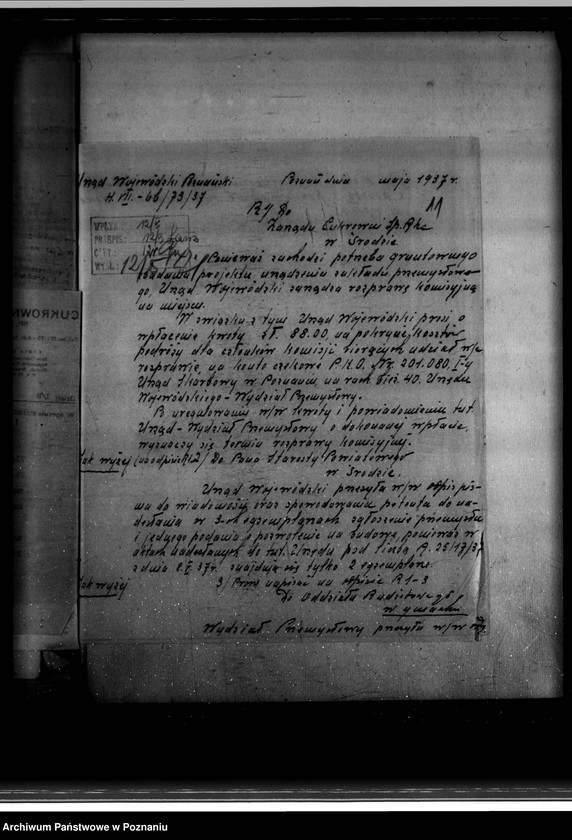 Urząd Wojewódzki Poznański Poznań dnia maja 1937 r.
H. VII. - 6b/73/37
11
Zarządu Cukrowni Sp. Akc.
w Środzie
WPŁYN. 12/5
PRZEPIS. 12/5
CZYT.
WYSŁ. 12/5
Ponieważ zachodzi potrzeba gruntownego
zbadania projektu urządzenia zakładu przemysłowe-
go, Urząd Wojewódzki zarządza rozprawę komisyjną
na miejscu.
W związku z tym Urząd Wojewódzki prosi o
wpłacenie kwoty zł. 88.00 na pokrycie kosztów
podróży dla członków komisji biorących udział w/w
rozprawie, na konto czekowe P.K.O. Nr. 201.080 I-y
Urząd Skarbowy w Poznaniu, na rach. bież. 40. Urzędu
Wojewódzkiego - Wydział Przemysłowy.
Po uregulowaniu w/w kwoty i powiadomieniu tut.
Urząd - Wydział Przemysłowy o dokonanej wpłacie,
wyznaczy się termin rozprawy komisyjnej.
Jak wyżej 2/ Do Pana Starosty Powiatowego
w Środzie.
Urząd Wojewódzki przesyła w/w odpis pis-
ma do wiadomości oraz spowodowania petenta do na-
desłania w 3-ch egzemplarzach zgłoszenie przemysłu
i jednego podania o pozwolenie na budowę, ponieważ w
aktach nadesłanych do tut. Urzędu pod liczbą A. 25/17/37
z dnia 8.I. 37 r. znajdują się tylko 2 egzemplarze.
Jak wyżej 3/ Pismo napisać na odpisie R 1-3
Do Oddziału Budowlanego
w gmachu
Wydział Przemysłowy przesyła w/w
CUKROWN
Archiwum Państwowe w Poznaniu